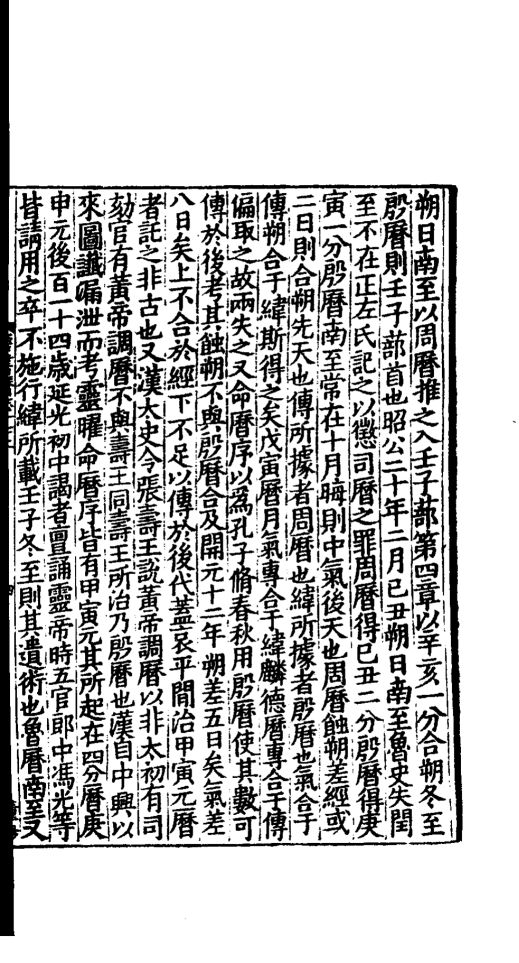 朔日南至以周曆推之入壬子蔀第四章以辛亥一分合朔冬至
殷曆則壬子蔀首也昭公二十年二月己丑朔日南至魯史失閏
至不在正左氏記之以懲司曆之罪周曆得己丑二分殷曆得庚
寅一分殷曆南至常在十月晦則中氣後天也周曆蝕朔差經或
二日則合朔先天也傳所據者周曆也緯所據者殷曆也氣合于
傳朔合于緯斯得之矣戊寅曆月氣專合于緯麟德曆專合于傳
偏取之故兩失之又命曆序以為孔子脩春秋用殷曆使其數可
傳於後考其蝕朔不與殷曆合及開元十二年朔差五日矣氣差
八日矣上不合於經下不足以傳於後代蓋哀平間治甲寅元曆
者託之非古也又漢太史令張壽王說黃帝調曆以非太初有司
劾官有黃帝調曆不與壽王同壽王所治乃殷曆也漢自中興以
來圖讖漏泄而考靈曜命曆序皆有甲寅元其所起在四分曆庚
申元後百一十四歲延光初中謁者亶誦靈帝時五官郎中馮光等
皆請用之卒不施行緯所載壬子冬至則其遺術也魯曆南至又